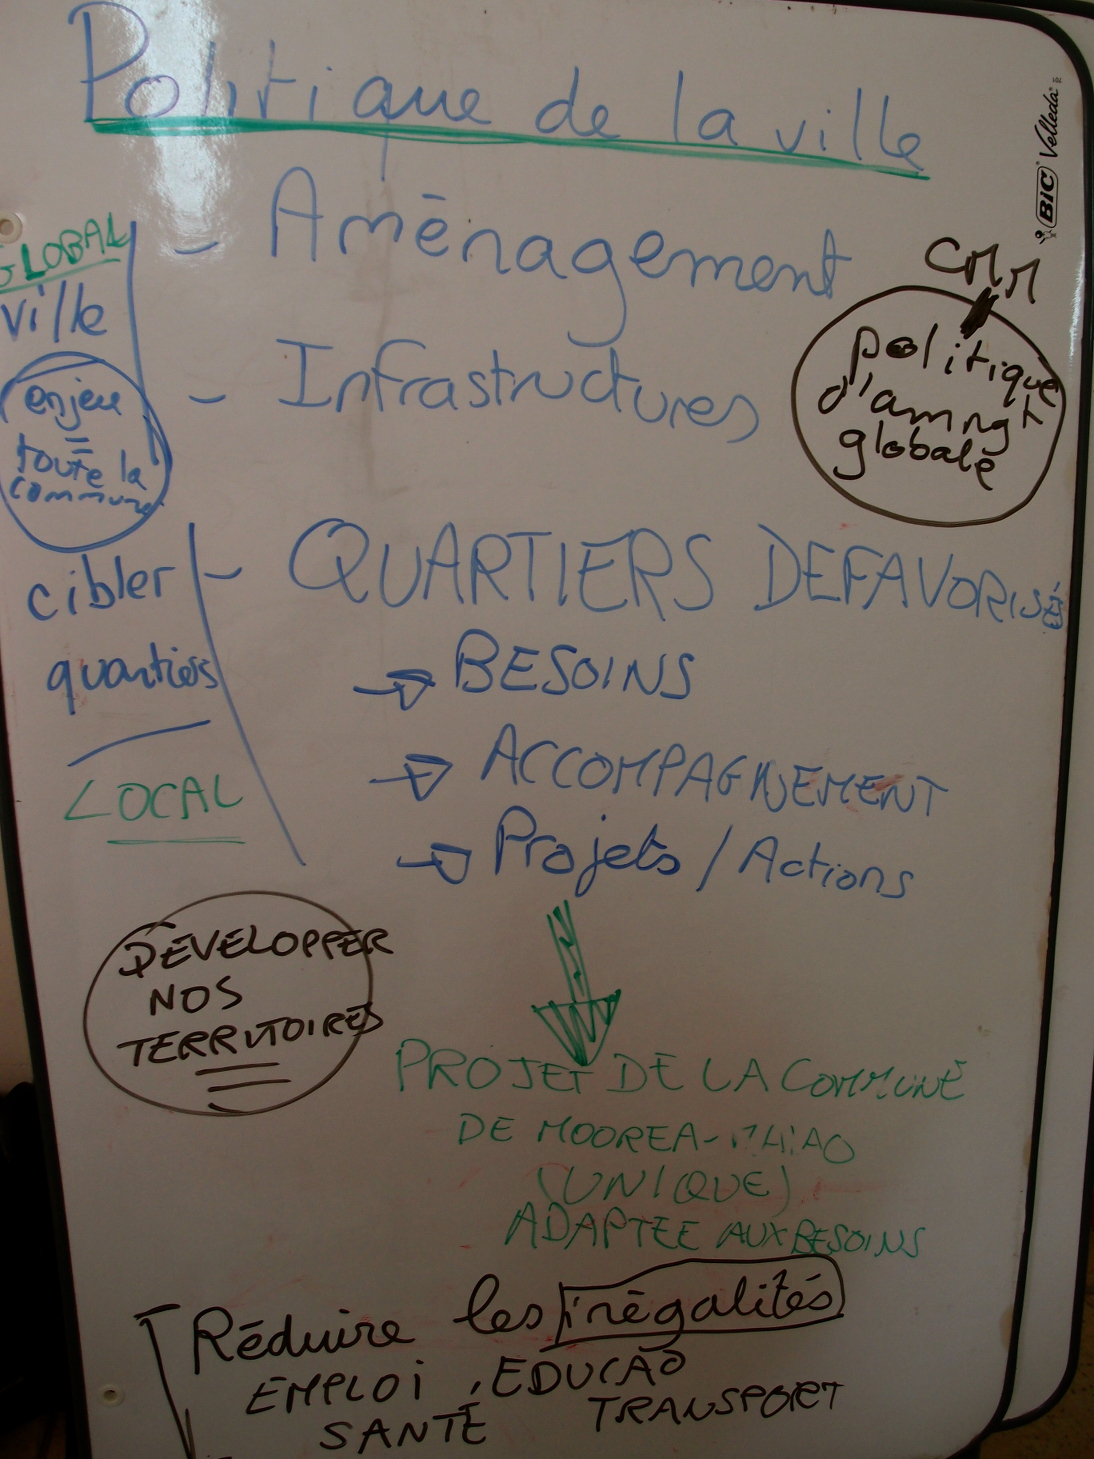 Politique de la ville
BIC Velleda
GLOBAL
ville
- Aménagement
CMM
enjeu
=
toute la
commune
- Infrastructures
politique
d'amngt
globale
cibler
quartiers
LOCAL
- QUARTIERS DEFAVORISÉS
BESOINS
ACCOMPAGNEMENT
Projets / Actions
DEVELOPPER
NOS
TERRITOIRES
PROJET DE LA COMMUNE
DE MOOREA-
(UNIQUE)
ADAPTEE AUX BESOINS
Réduire les inégalités
EMPLOI, EDUCAO
SANTÉ TRANSPORT